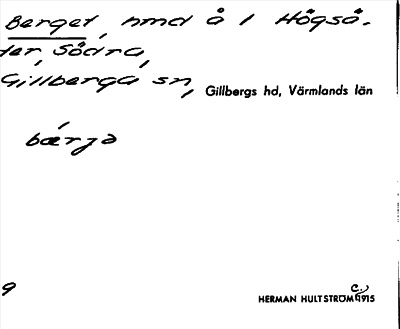 Berget, hmd å 1 Högså-
ter, Södra,
Gillberga sn, Gillbergs hd, Värmlands län
bærjə
9
HERMAN HULTSTRÖM C.) 1915